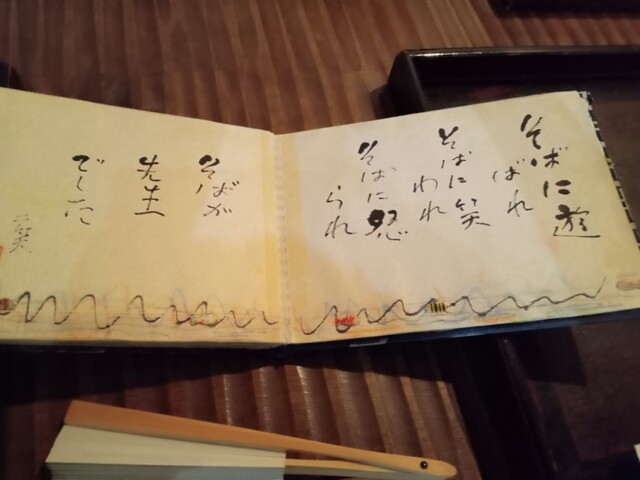 そばに遊
ばれ
そばに笑
われ
そばに怒
られ
そばが
先生
でした